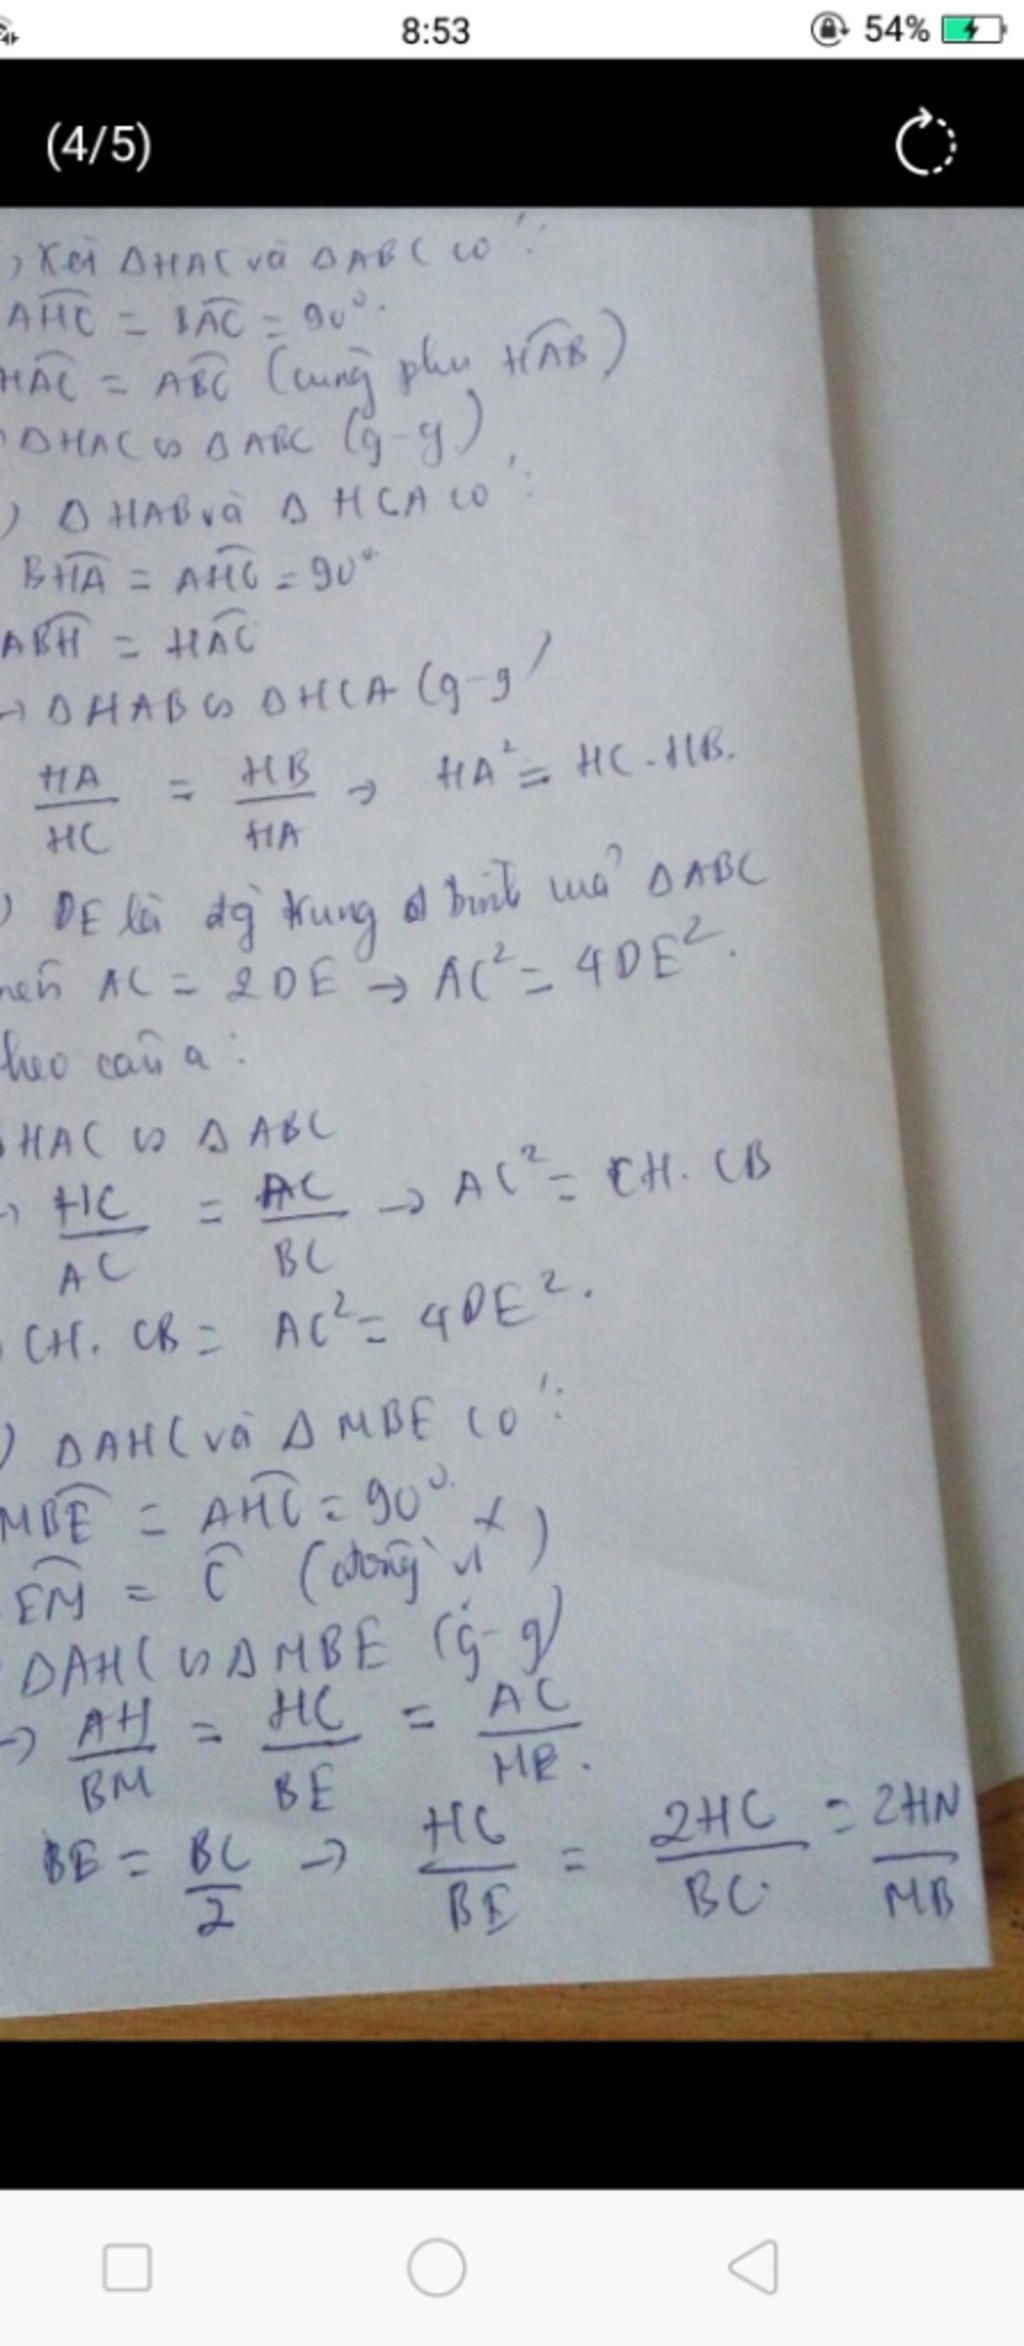 8:53
54%
(4/5)
) Xét ΔHAC và ΔABC có:
AHC = BAC = 90°.
HAC = ABC (cùng phụ HAB)
ΔHAC ∽ ΔABC (g-g)
) ΔHAB và ΔHCA có:
BHA = AHC = 90°
ABH = HAC
→ ΔHAB ∽ ΔHCA (g-g)
HA/HC = HB/HA → HA² = HC.HB.
) DE là đg trung bình của ΔABC
nên AC = 2DE → AC² = 4DE².
heo câu a:
HAC ∽ ΔABC
→ HC/AC = AC/BC → AC² = CH.CB
CH.CB = AC² = 4DE².
) ΔAHC và ΔMBE có:
MBE = AHC = 90°
EM = C (đồng vị)
ΔAHC ∽ ΔMBE (g-g)
→ AH/BM = HC/BE = AC/ME.
BE = BC/2 → HC/BE = 2HC/BC = 2HN/MB